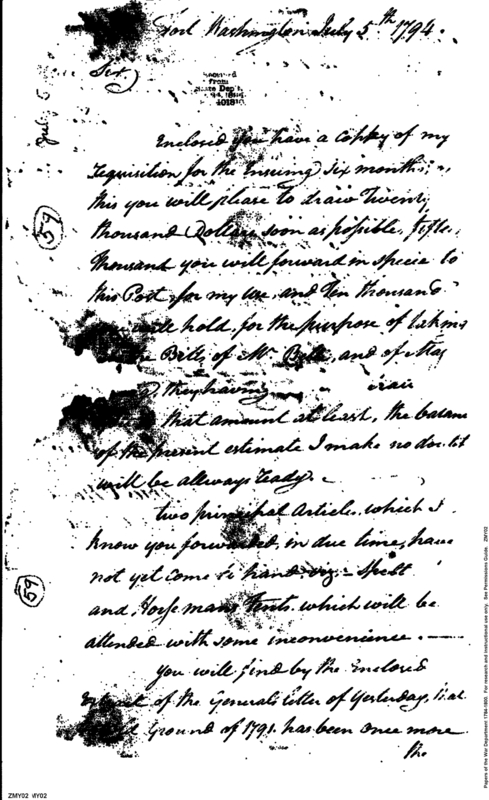 Fort Washington July 5th 1794.
Sir,
Received
from
State Dep't.
July 5
59
Enclosed you have a Coppy of my
requisition for the Ensuing Six months,
this you will please to draw Twenty
thousand Dollars, soon as possible,
thousand you will forward in specie to
this Post for my use, and Ten thousand
will hold, for the purpose of taking
Bills of Mr.
and of
they having
that amount at least, the balance
of the present estimate I make no doubt
will be allways ready.
two principal Articles, which I
know you forwarded, in due time, have
not yet come to hand,
59
and, Horse mans Tents, which will be
attended with some inconvenience.
you will find by the Enclosed
of the Generals letter of Yesterday,
Ground of 1791. has been once more
the
Papers of the War Department 1784-1800. For research and instructional use only. See Permissions Guide. ZMY02
ZMY02 MY02